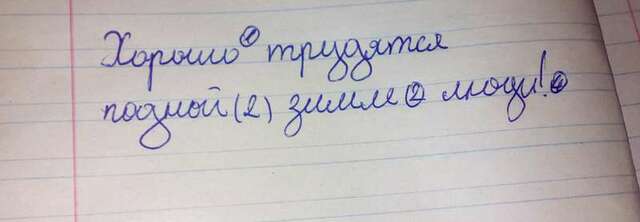 Хорошо① трудятся
подной (2) зимле ② люди!